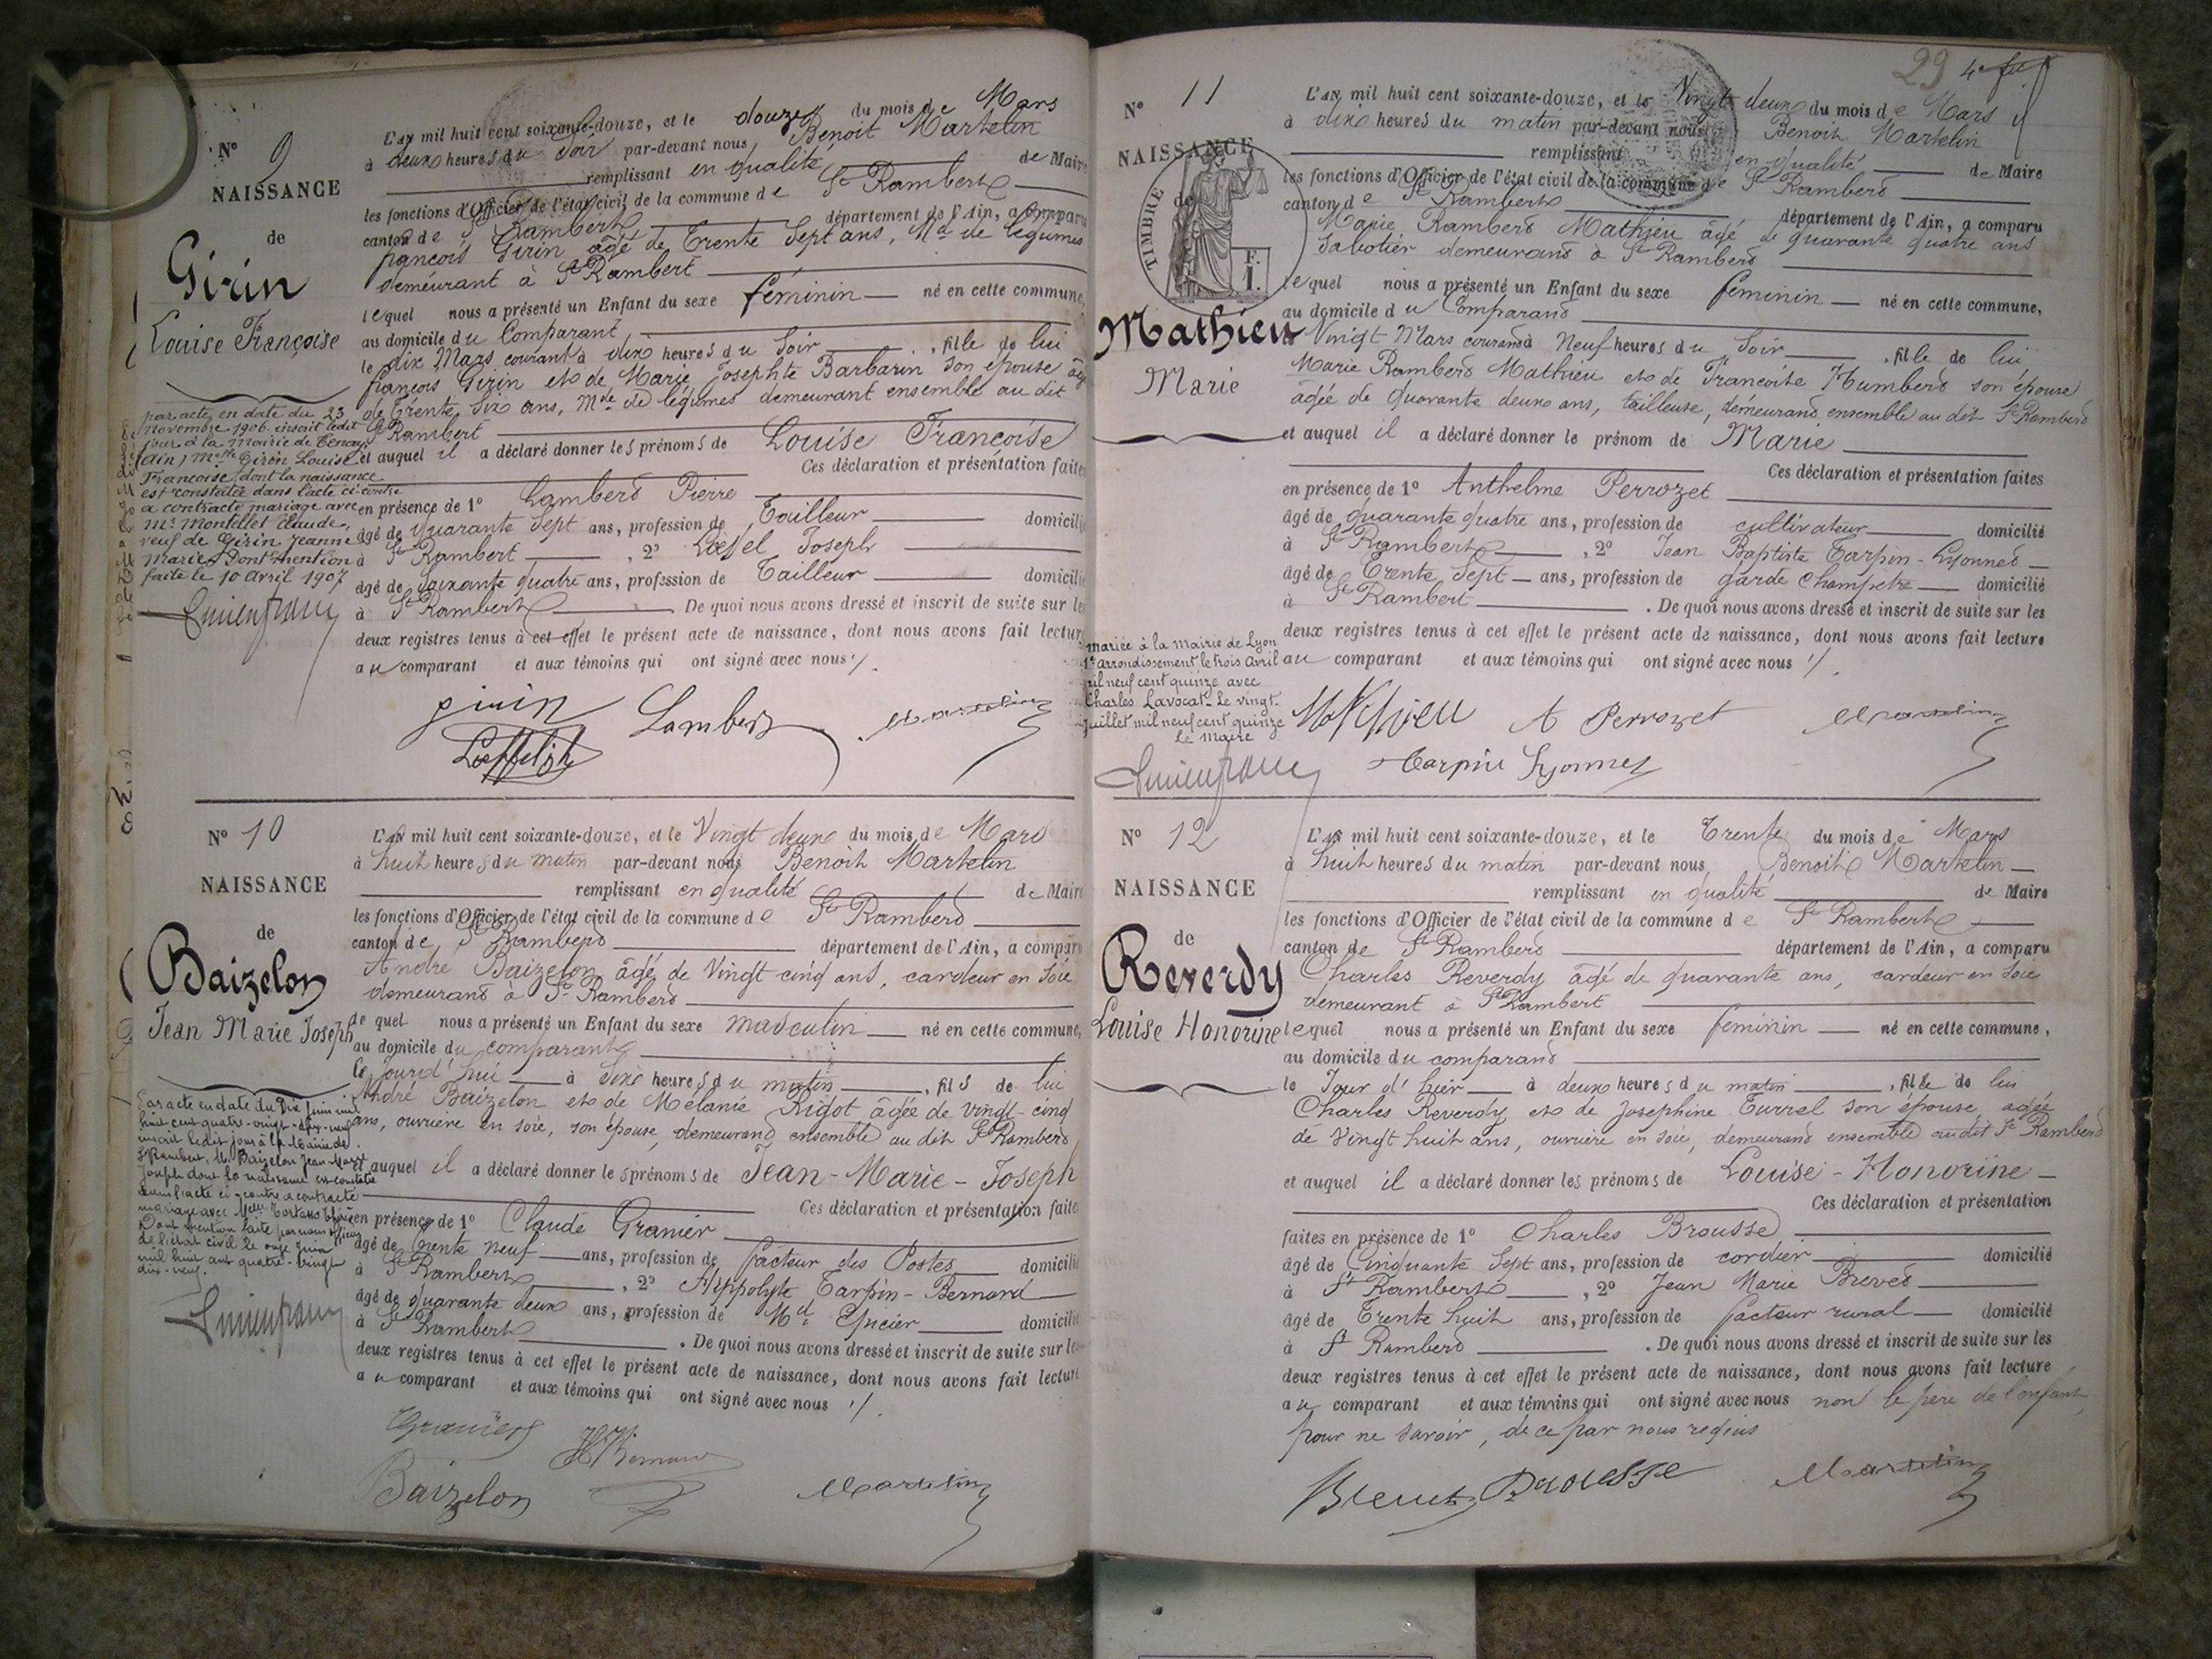 N° 9
NAISSANCE
de
Girin
Louise Françoise
par acte en date du 23
novembre 1906 inscrit ledit
jour à la mairie de Tenay
(Ain) Melle Girin Louise
Françoise, dont la naissance
est constatée dans l'acte ci-contre
a contracté mariage avec
Mr Montellet Claude,
veuf de Girin Jeanne
Marie. Dont mention
faite le 10 avril 1907
L'AN mil huit cent soixante-douze, et le douze du mois de Mars
à deux heures du Soir par-devant nous Benoit Martelin
remplissant en qualité de Maire
les fonctions d'Officier de l'état civil de la commune de St Rambert
canton de St Rambert département de l'Ain, a comparu
françois Girin âgé de Trente Sept ans, Md de légumes
demeurant à St Rambert
lequel nous a présenté un Enfant du sexe féminin né en cette commune,
au domicile du Comparant,
le dix Mars courant à dix heures du Soir, fille de lui
françois Girin et de Marie Josephte Barbarin son épouse âgée
de Trente Six ans, Mde de légumes demeurant ensemble au dit
St Rambert
et auquel il a déclaré donner les prénoms de Louise Françoise
Ces déclaration et présentation faites
en présence de 1° Lambert Pierre
âgé de Quarante Sept ans, profession de Tailleur domicilié
à St Rambert, 2° Loeffel Joseph
âgé de Soixante quatre ans, profession de Tailleur domicilié
à St Rambert. De quoi nous avons dressé et inscrit de suite sur les
deux registres tenus à cet effet le présent acte de naissance, dont nous avons fait lecture
au comparant et aux témoins qui ont signé avec nous ./.
girin Lambert Martelin
N° 10
NAISSANCE
de
Baizelon
Jean Marie Joseph
Par acte en date du Dix Juin mil
huit cent quatre-vingt-dix-neuf
inscrit ledit jour à la Mairie de
St Rambert, M. Baizelon Jean Marie
Joseph dont la naissance est constatée
dans l'acte ci-contre a contracté
mariage avec Melle
Dont mention faite par nous officier
de l'état civil le onze Juin
mil huit cent quatre-vingt
dix-neuf.
L'AN mil huit cent soixante-douze, et le Vingt deux du mois de Mars
à huit heures du matin par-devant nous Benoit Martelin
remplissant en qualité de Maire
les fonctions d'Officier de l'état civil de la commune de St Rambert
canton de St Rambert département de l'Ain, a comparu
André Baizelon âgé de Vingt cinq ans, cardeur en soie
demeurant à St Rambert
lequel nous a présenté un Enfant du sexe masculin né en cette commune,
au domicile du comparant
le jourd'hui à Six heures du matin, fils de lui
André Baizelon et de Mélanie Rigot âgée de vingt-cinq
ans, ouvrière en soie, son épouse, demeurant ensemble au dit St Rambert
et auquel il a déclaré donner les prénoms de Jean-Marie-Joseph
Ces déclaration et présentation faites
en présence de 1° Claude Granier
âgé de Trente neuf ans, profession de facteur des Postes domicilié
à St Rambert, 2° Hippolyte Tarpin-Bernard
âgé de quarante deux ans, profession de Md Epicier domicilié
à St Rambert. De quoi nous avons dressé et inscrit de suite sur les
deux registres tenus à cet effet le présent acte de naissance, dont nous avons fait lecture
au comparant et aux témoins qui ont signé avec nous ./.
Granier
Baizelon Martelin
29
N° 11
NAISSANCE
de
TIMBRE
F.
1.
Mathieu
Marie
mariée à la mairie de Lyon
1er arrondissement le trois avril
mil neuf cent quinze avec
Charles Lavocat. Le vingt
juillet mil neuf cent quinze
Le Maire
L'AN mil huit cent soixante-douze, et le Vingt deux du mois de Mars
à dix heures du matin par-devant nous Benoit Martelin
remplissant en qualité de Maire
les fonctions d'Officier de l'état civil de la commune de St Rambert
canton de St Rambert département de l'Ain, a comparu
Marie Rambert Mathieu âgé de quarante quatre ans
Sabotier demeurant à St Rambert
lequel nous a présenté un Enfant du sexe féminin né en cette commune,
au domicile du Comparant
Vingt Mars courant à Neuf heures du Soir, fille de lui
Marie Rambert Mathieu et de Françoise Humbert son épouse
âgée de Quarante deux ans, tailleuse, demeurant ensemble au dit St Rambert
et auquel il a déclaré donner le prénom de Marie
Ces déclaration et présentation faites
en présence de 1° Anthelme Perrozet
âgé de quarante quatre ans, profession de cultivateur domicilié
à St Rambert, 2° Jean Baptiste Tarpin-Lyonnet
âgé de Trente Sept ans, profession de garde Champetre domicilié
à St Rambert. De quoi nous avons dressé et inscrit de suite sur les
deux registres tenus à cet effet le présent acte de naissance, dont nous avons fait lecture
au comparant et aux témoins qui ont signé avec nous ./.
Mathieu A Perrozet Martelin
Tarpin Lyonnet
N° 12
NAISSANCE
de
Reverdy
Louise Honorine
L'AN mil huit cent soixante-douze, et le Trente du mois de Mars
à huit heures du matin par-devant nous Benoit Martelin
remplissant en qualité de Maire
les fonctions d'Officier de l'état civil de la commune de St Rambert
canton de St Rambert département de l'Ain, a comparu
Charles Reverdy âgé de quarante ans, cardeur en soie
demeurant à St Rambert
lequel nous a présenté un Enfant du sexe féminin né en cette commune,
au domicile du comparant
le Jour d'hier à deux heures du matin, fille de lui
Charles Reverdy et de Josephine Turrel son épouse, agée
de Vingt huit ans, ouvrière en soie, demeurant ensemble au dit St Rambert
et auquel il a déclaré donner les prénoms de Louise-Honorine
Ces déclaration et présentation
faites en présence de 1° Charles Brousse
âgé de Cinquante Sept ans, profession de cordier domicilié
à St Rambert, 2° Jean Marie Brevet
âgé de Trente huit ans, profession de facteur rural domicilié
à St Rambert. De quoi nous avons dressé et inscrit de suite sur les
deux registres tenus à cet effet le présent acte de naissance, dont nous avons fait lecture
au comparant et aux témoins qui ont signé avec nous non le père de l'enfant,
pour ne savoir, de ce par nous requis
Brevet Brousse Martelin